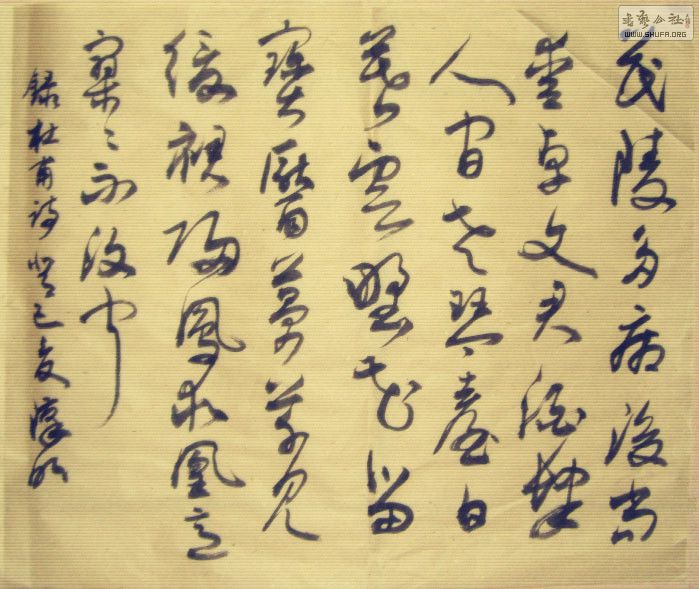 茂陵多病後尚
愛卓文君酒肆
人間世琴臺日
暮雲野花留
寶靨蔓草見
羅裙歸鳳求凰意
寥々不復聞
錄杜甫詩 癸巳夏
書藝公社
WWW.SHUFA.ORG